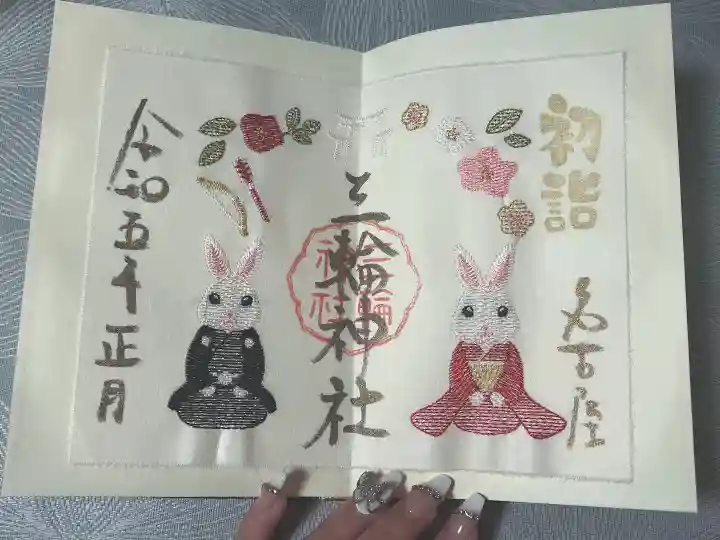 初詣
名古屋
三輪神社
三輪神社
令和五年正月